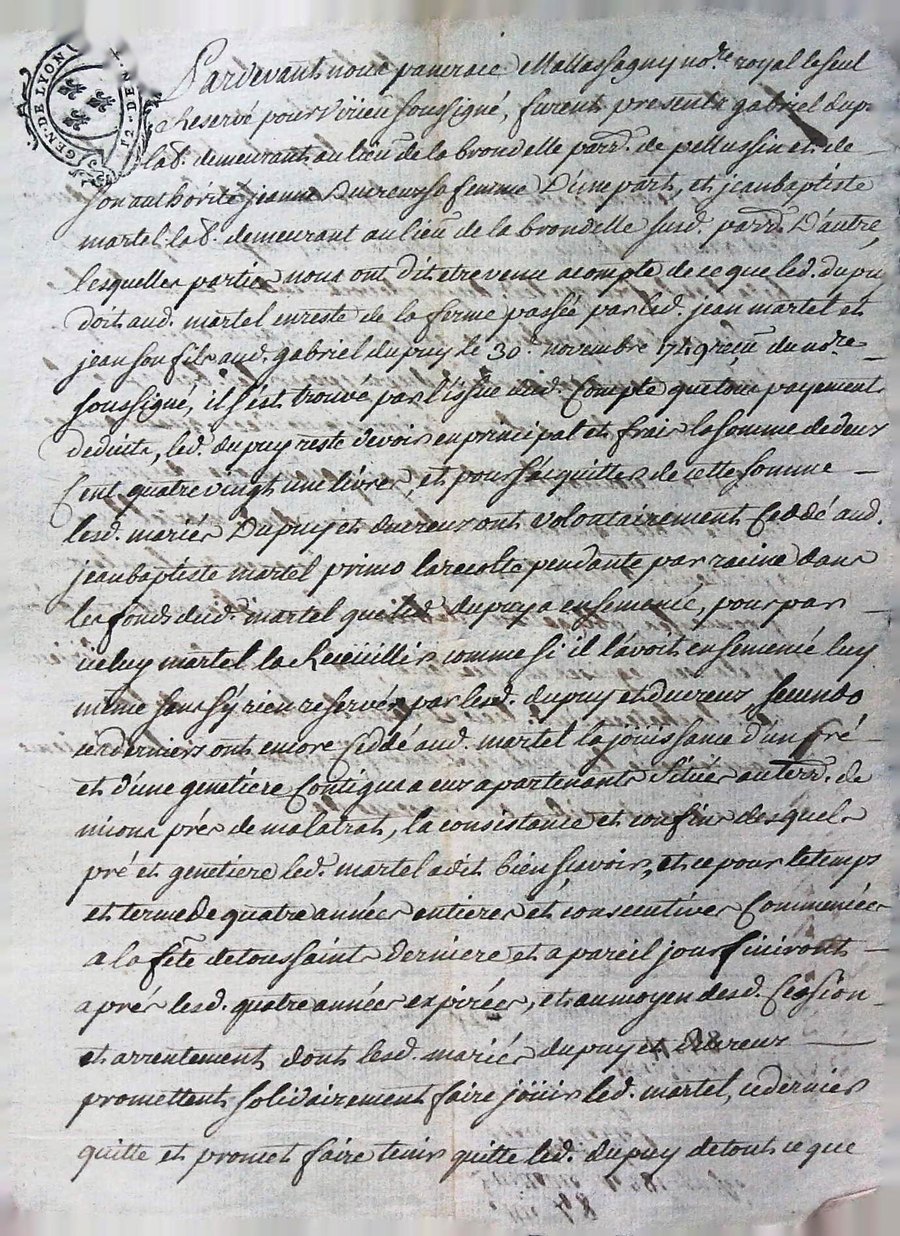 GEN. DE LYON 12 DENI
Pardevant nous Mallassagny no.re royal le seul
Reservé pour Virieu soussigné, furent presents gabriel dup
lab.r demeurant au lieu de la brondelle parr.e de pellussin et de
son authorité jeanne Duvreux sa femme D'une part, et jean baptiste
martel lab.r demeurant au lieu de la brondelle susd. parr.e D'autre,
lesquelles parties nous ont dit etre venu a compte de ce que led. dupuy
doit aud. martel en reste de la ferme passée par led. jean martel et
jean son fils aud. gabriel dupuy le 30.e novembre reçeu du no.re
soussigné, il s'est trouvé par l'issue dud. Compte que tous payements
deduits, led. dupuy reste devoir en principal et frais la somme de deux
Cent quatre vingt une livres, et pour s'acquitter de cette somme
lesd. mariés Dupuy et duvreux ont volontairement Ceddé aud.
jean baptiste martel primo la recolte pendante par racine dans
les fonds dud. martel que led. dupuy a ensemencé, pour par
iceluy martel la Recueillir comme si il l'avoit ensemencé luy
même sans s'y rien reserver par lesd. dupuy et duvreux, secundo
ces derniers ont encore Ceddé aud. martel la jouissance d'un pré
et d'une genetiere Contigus a eux apartenants situés au terr.e de
nions prés de malatrat, la consistance et confins desquels
pré et genetiere led. martel a dit bien sçavoir, et ce pour le temps
et terme de quatre années entieres et consecutives Commencées
a la fête de toussaints derniere et a pareil jour finiront
aprés lesd. quatre années expirées, et au moyen desd. Cession
et arrentement dont lesd. mariés dupuy et duvreux
promettent solidairement faire joüir led. martel, ce dernier
quitte et promet faire tenir quitte led. dupuy de tout ce que